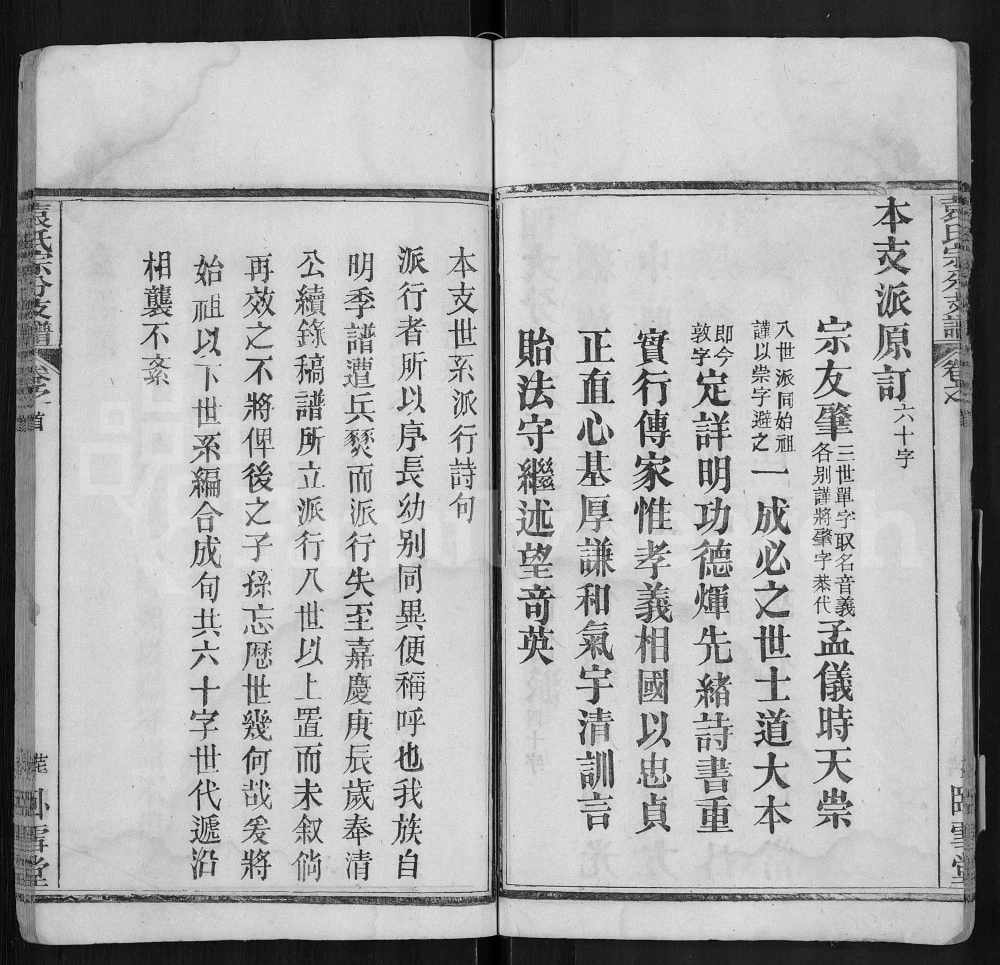 本支派原訂六十字
宗友肇三世單字取名音義各别謹將肇字恭代孟儀時天崇
八世派同始祖謹以崇字避之一成必之世士道大本
即今敦字定詳明功德煇先緒詩書重
實行傳家惟孝義相國以忠貞
正直心基厚謙和氣宇清訓言
貽法守繼述望奇英
袁氏宗分支譜 卷之首
臥雪堂
本支世系派行詩句
派行者所以序長幼别同異便稱呼也我族自
明季譜遭兵燹而派行失至嘉慶庚辰歲奉清
公續錄稿譜所立派行八世以上置而未叙倘
再效之不將俾後之子孫忘歴世幾何哉爰將
始祖以下世系編合成句共六十字世代遞沿
相襲不紊
袁氏宗分支譜 卷之首
臥雪堂